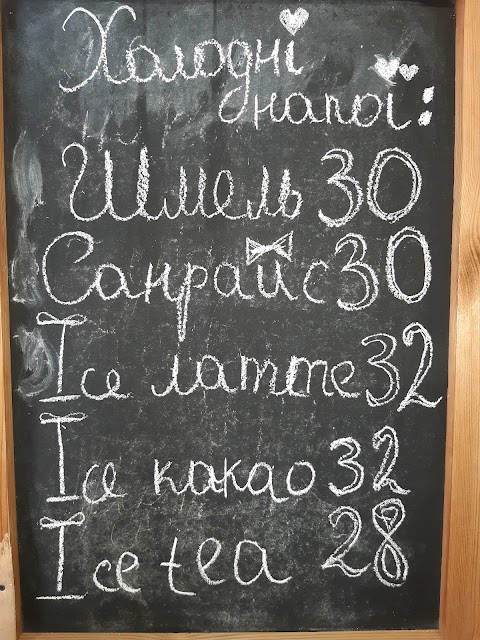 Холодні
напої:
Шмель 30
Санрайс 30
Ice латте 32
Ice какао 32
Ice tea 28